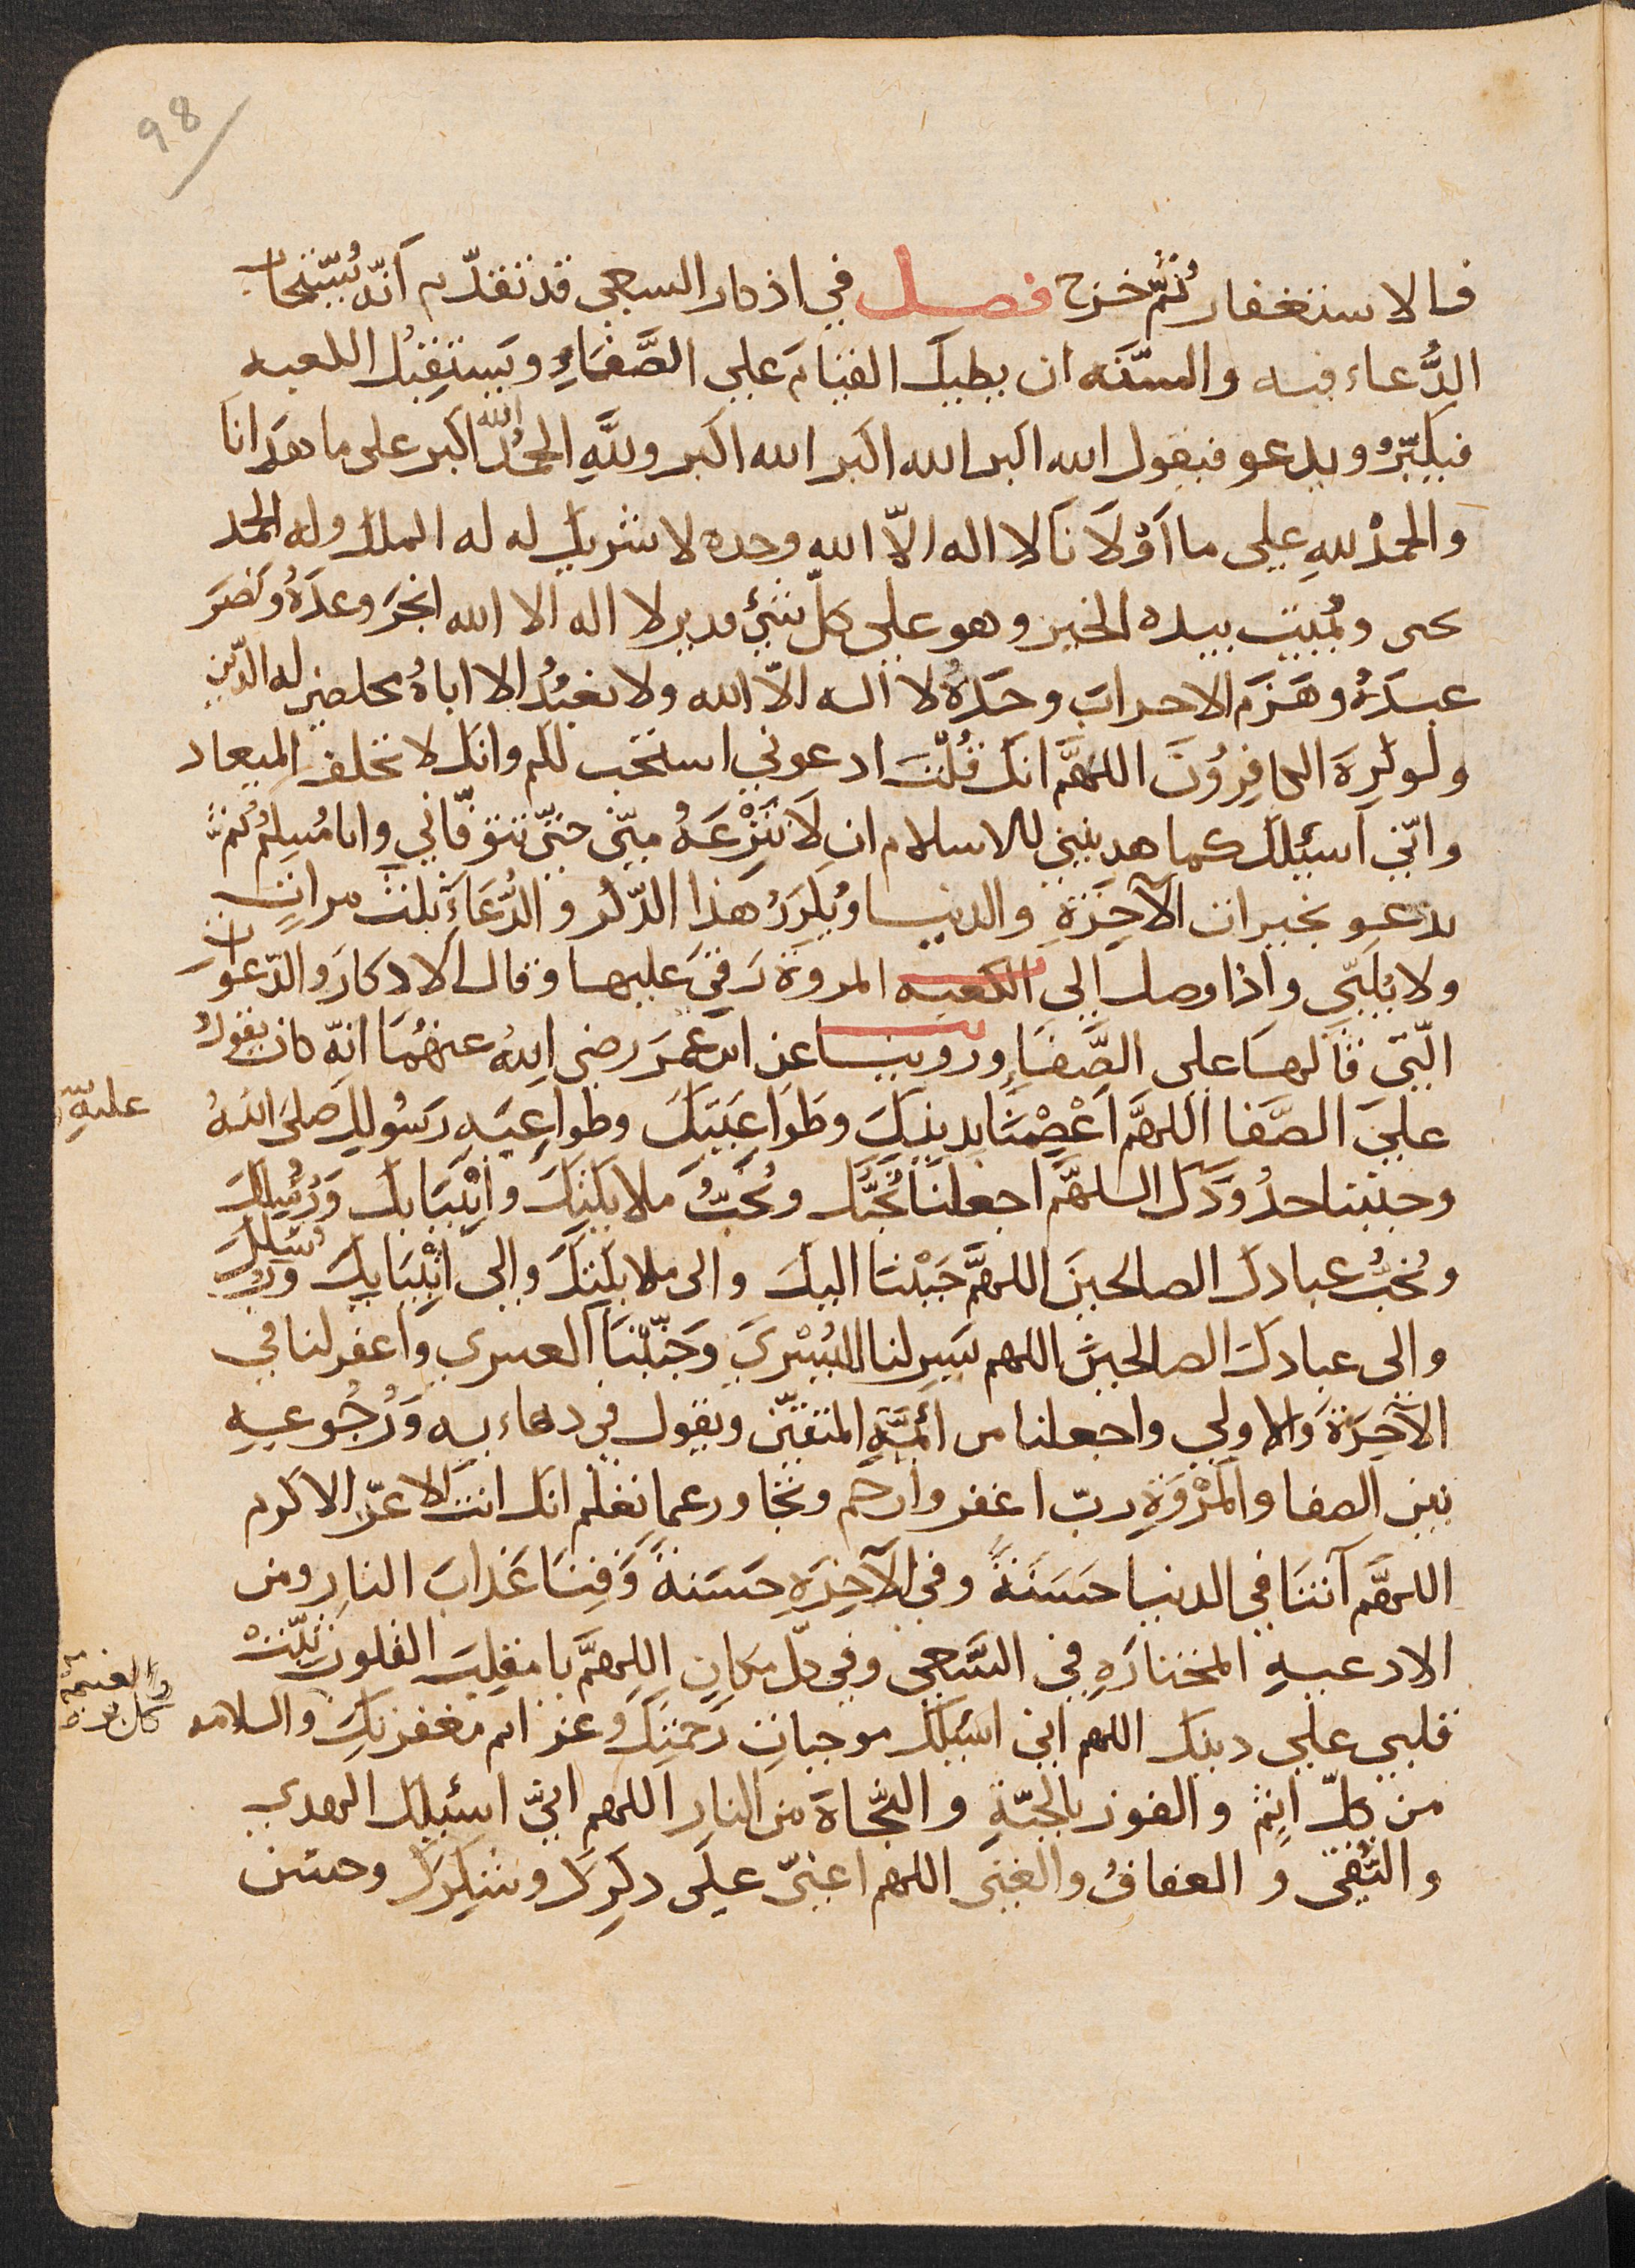 98
والاستغفار ثُمَّ خرج فصل في اذكار السعي قد تقدّم اَنّه يُستجاب
الدُّعاء فيه والسنّه ان يطيل القيامَ على الصَّفَاءِ ويَستقبِلُ الكعبه
فيكبّرُ ويدعو فيقول الله اكبر الله اكبر الله اكبر ولله الحمْدُ الله اكبر على ما هَدَانَا
والحمْدُ للهِ على ما اَوْلَانَا لا اله الّا الله وحده لا شريك له له الملك وله الحمد
يحى ويُميت بيده الخير وهو على كلّ شئ قدير لا اله الا الله انجَز وعدَهُ ونَصَرَ
عبدَهُ وهَزَم الاحزابَ وحَدهُ لا اله الّا الله ولا نعبُدُ الا اياهُ مخلصين له الدّين
ولو كرِهَ الكافِرُونَ اللهمَّ انّكَ قُلْتَ ادعوني استجب لكم وانكَ لا تخلف الميعاد
وانّي اَسئلُكَ كما هديتني للاسلام ان لَا تَنْزِعَهُ منّي حتّى تتوفّاني وانا مُسِلمٌ ثمَّ
يدعو بخيرات الآخِرَةِ والدنيا ويُكرّرُ هذا الذّكر والدُّعَاءَ ثلثَ مراتٍ
ولا يُلبّي واذا وصل الى الكعبه المروة رَقيَ عليها وقال الاذكارَ والدّعوات
الّتي قالها على الصَّفَا وروينا عن ابن عمَرَ رضى اللهُ عنهُمَا انّه كان يقولُ
علىَ الصَّفا اللهمَّ اعْصِمْنَا بدينِكَ وطَواعيَتِكَ وطواعيَه رسُولِك صلىَ اللهُ
عليهِ
وجنّبنا حدُودَكَ اللهمَّ اجعلنَا نُحبُّكَ ونُحبُّ ملايكتِكَ وانْبيَايكَ ورُسُلَكَ
ونُحبُّ عبادكَ الصالحينَ اللهمَّ حَبّبْنَا اليكَ والى ملايكتِكَ والى انْبيَايِكَ ورُسُلِكَ
والى عبادكَ الصالحينَ اللهم يَسّر لنا اليُسْرىَ وَجَنّبْنَا العسرى واغفر لنا في
الآخِرَة والاولى واجعلنا من أئمّةِ المتقين ويقول في دهاءبه وَرُجُوعِهِ
بين الصفا والمَرْوَةِ ربّ اغفر وارحم وتجاوز عما تعلم انك انت الاعزّ الاكرم
اللهمَّ آتنَا في الدنيا حسَنَةً وفي الآخِرَةِ حسَنةً وَقِنَا عَذابَ النارِ ومن
الادعيهِ المختارَهِ في السَّعي وفي كلّ مكانٍ اللهمَّ يا مقلبَ القلوب ثبّتْ
قلبي على دينك اللهم اني اسئلُكَ موجباتِ رحمتِكَ وعزائم مغفرتِكَ والسلامه
والغنيمة
من كلّ اثمٍ والفوز بالجنّةِ والنّجاة من النار اللهم اني اسئلك الهدى
والتُقى والعفافُ والغِنى اللهم اعنّي على ذكرِكَ وشكِركَ وحسن